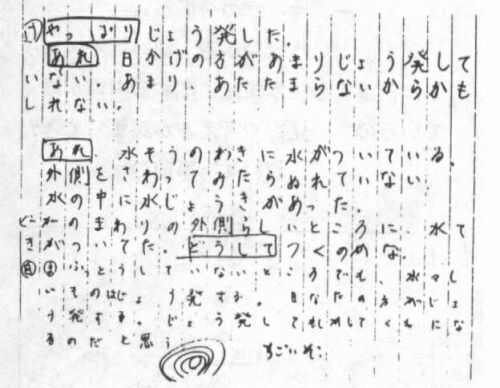 け やっぱりじょう発した。
あれ 日かげの方があまりじょう発して
いない。あまり、あたたまらないからかも
しれない。
あれ、水そうのわきに水がついている。
外側をさわってみたらぬれていない。
水の中に水じょうきがあった。
ビーカーのまわりの外側らしいところに、水て
きがついてた。どうしてつくのかな。
ふっとうしていないところでも、水々し
いものはじょう発する。日なたの方がじょ
う発する。じょう発して くもにな
るのだと思う
すごいぞ